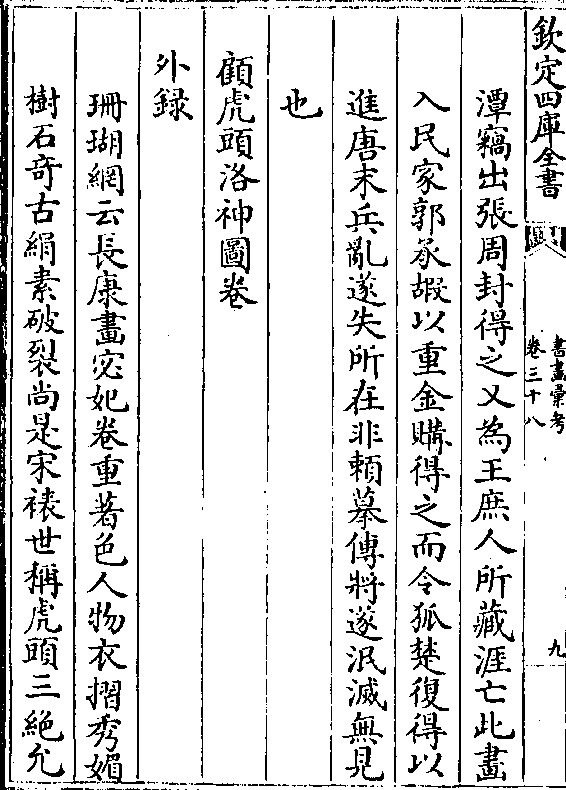 欽定四庫全書
書畫彙考
卷三十八
九
潭竊出張周封得之又為王庶人所藏涯亡此畫
入民家郭承嘏以重金購得之而令狐楚復得以
進唐末兵亂遂失所在非賴摹傳將遂泯滅無見
也
顧虎頭洛神圖卷
外録
珊瑚網云長康畫宓妃卷重著色人物衣摺秀媚
樹石奇古絹素破裂尚是宋裱世稱虎頭三絶允